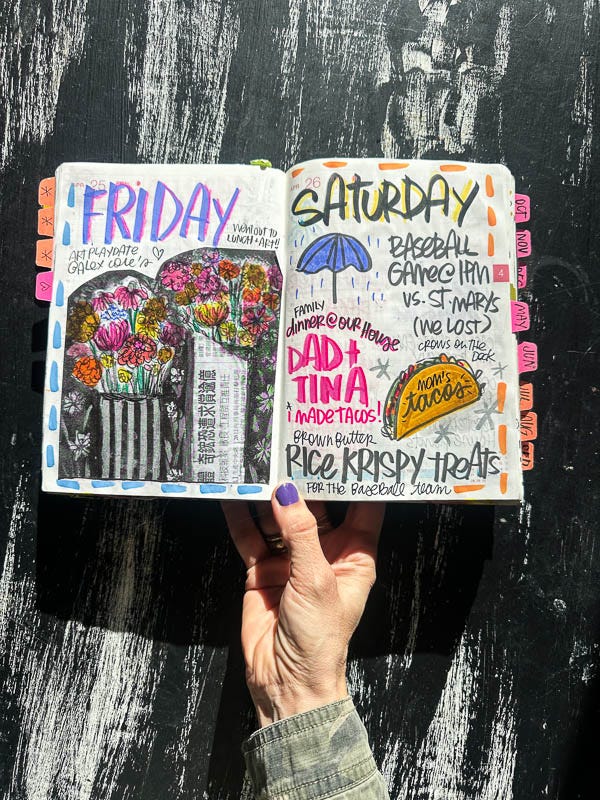 25
FRIDAY
WENT OUT TO
LUNCH + ART!!
ART PLAYDATE
@ALEX COLE'S
26
SATURDAY
BASEBALL
GAME@IHM
VS. ST. MARYS
(WE LOST)
CROWS ON THE
DECK
FAMILY
dinner@our House
DAD+
TINA
I MADE TACOS!
MOM'S
tacos
BROWN BUTTER
RICE KRISPY treats
FOR THE BASEBALL team
OCT
NOV
DEC
4
MAY
JUN
JUL
AUG